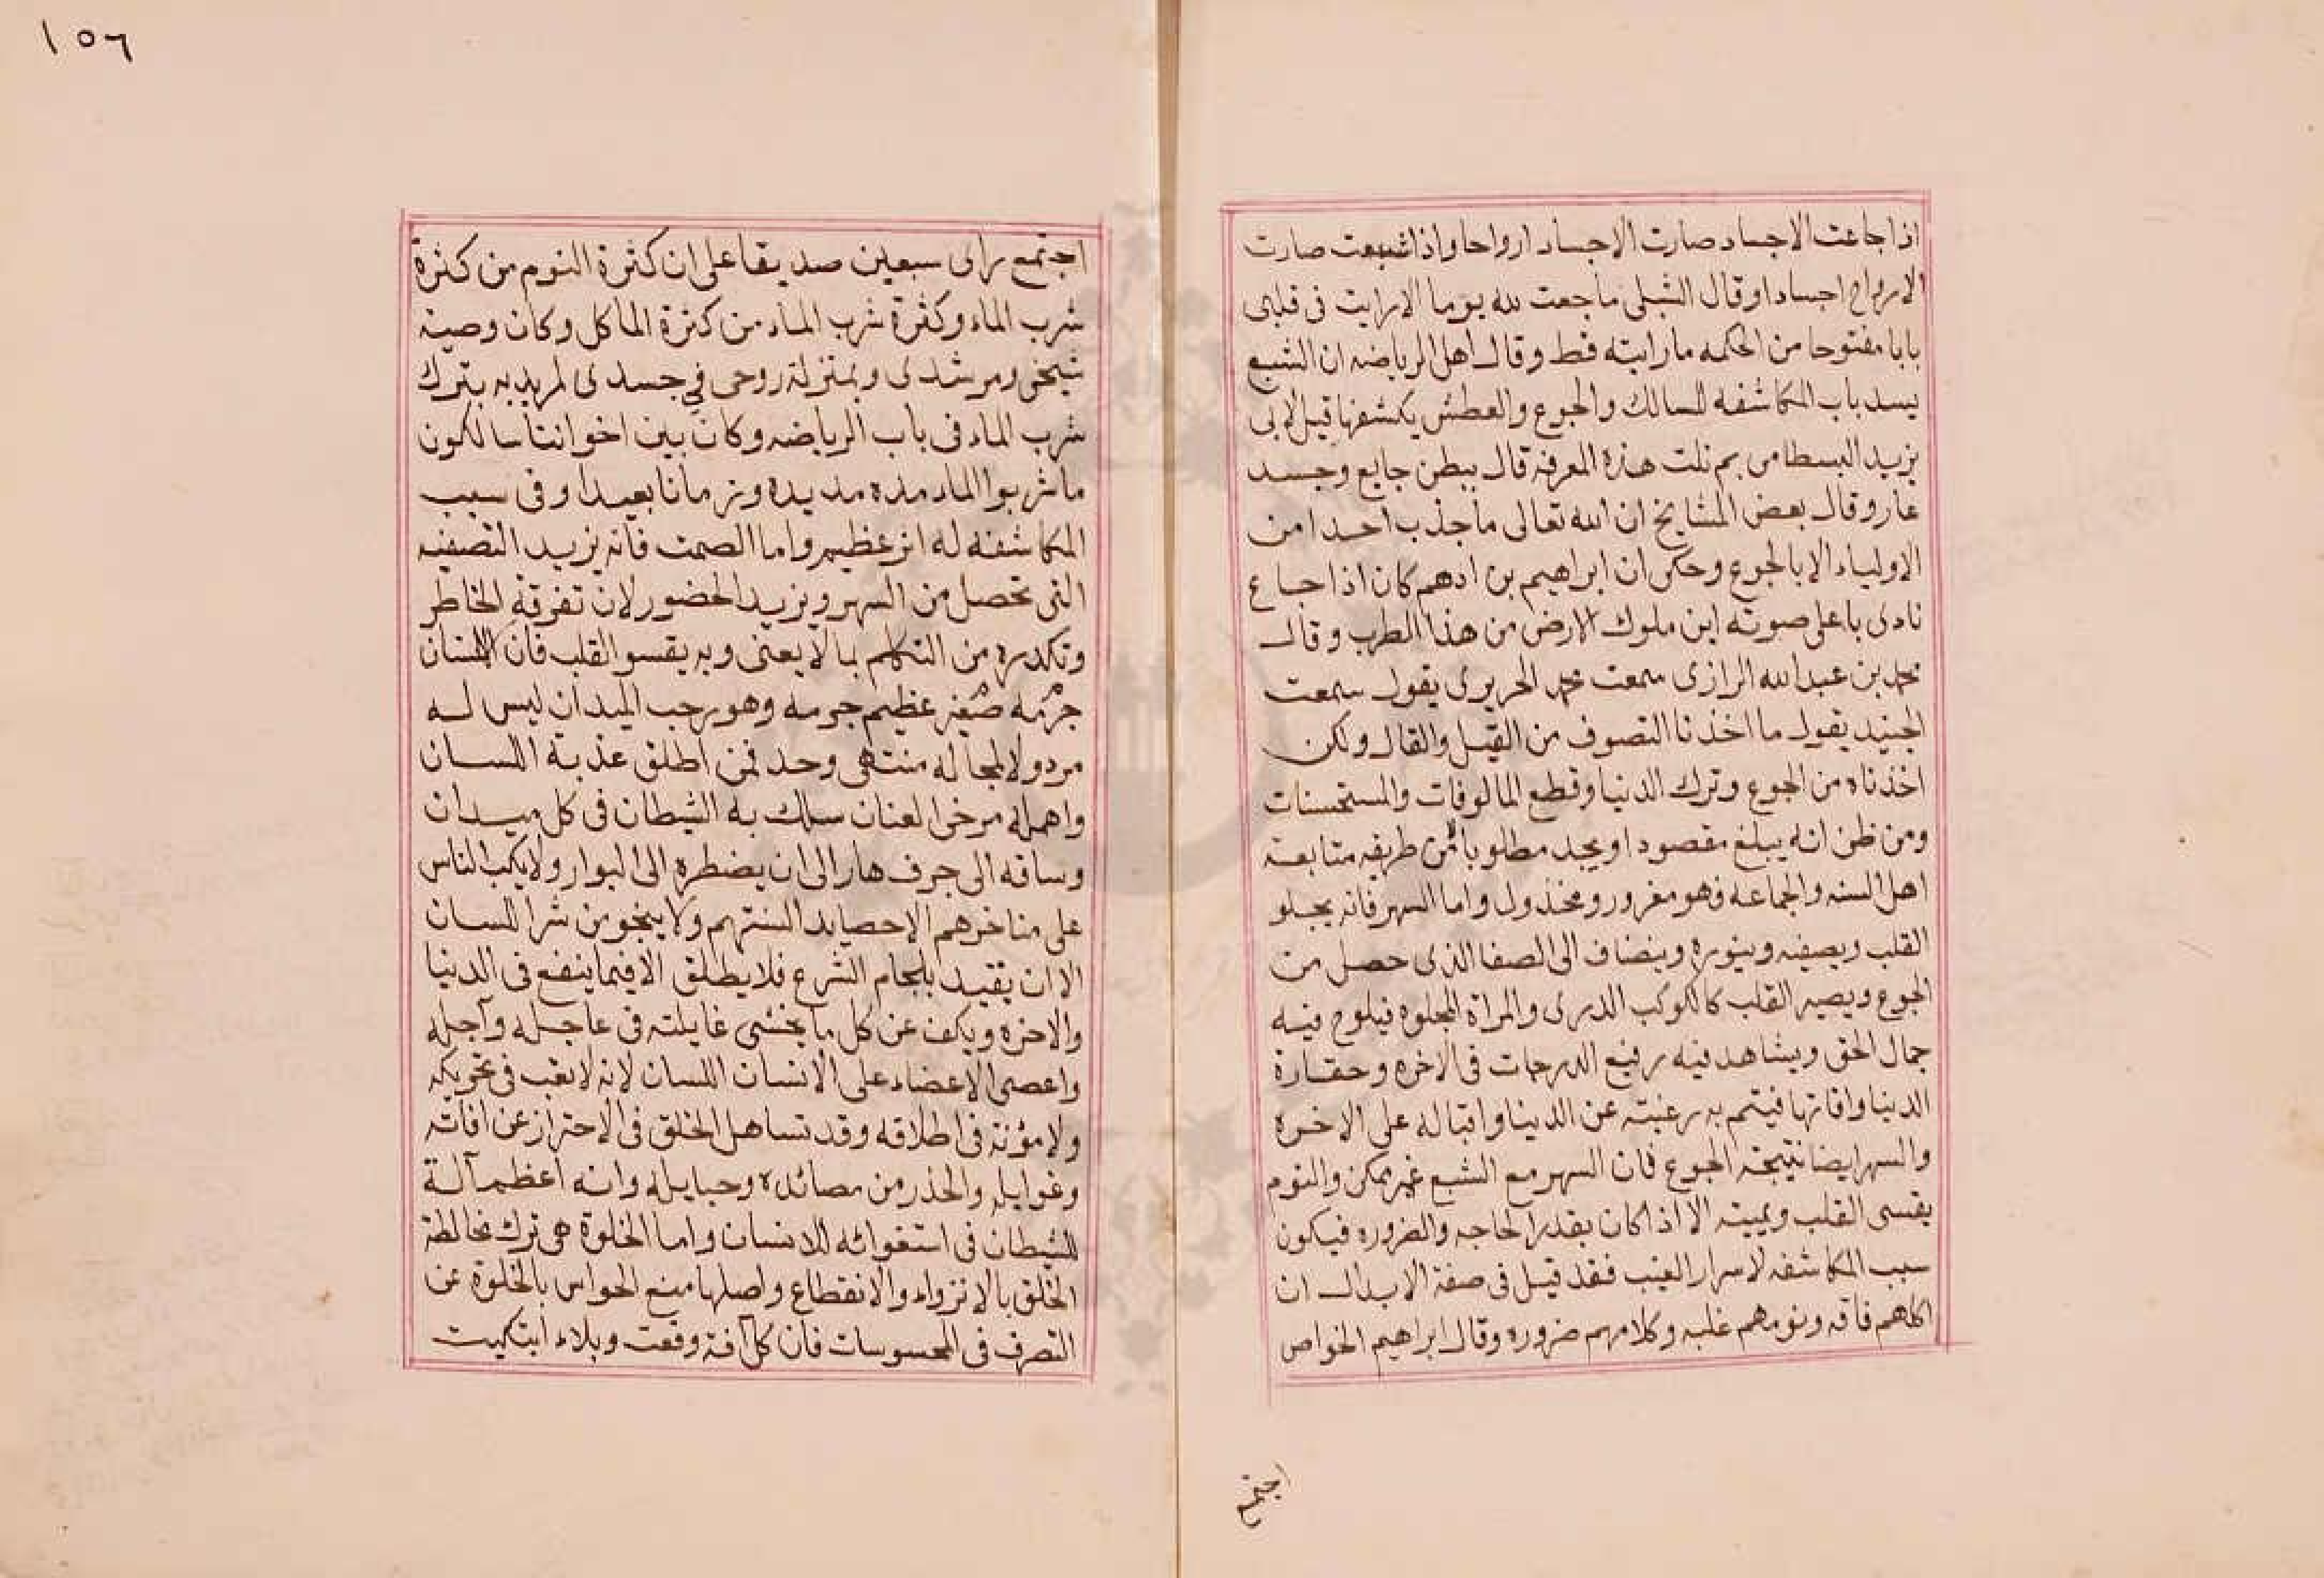 اذا جاعت الاجساد صارت الاجساد ارواحا واذا شبعت صارت
الارواح اجسادا وقال الشبلى ما جعت لله يوما الا رايت فى قلبى
بابا مفتوحا من الحكمه ما رايته قط وقال اهل الرياضه ان الشبع
يسد باب المكاشفه للسالك والجوع والعطش يكشفها قيل لابى
يزيد البسطامى بم نلت هذه المعرفه قال ببطن جايع وجسد
عار وقال بعض المشايخ ان الله تعالى ما جذب احدا من
الاولياء الا بالجوع وحكى ان ابراهيم بن ادهم كان اذا جاع
نادى باعلى صوته اين ملوك الارض من هذا الطرب وقال
محمد بن عبد الله الرازى سمعت محمد الحريرى يقول سمعت
الجنيد يقول ما اخذنا التصوف من القيل والقال ولكن
اخذناه من الجوع وترك الدنيا وقطع المالوفات والمستحسنات
ومن ظن انه يبلغ مقصودا ويجد مطلوبا من طريقه متابعة
اهل السنه والجماعه فهو مغرور ومخذول واما السهر فانه يجلو
القلب ويصفيه وينوره وينضاف الى الصفا الذى حصل من
الجوع ويصير القلب كالكوكب الدرى والمراة المجلوه فيلوح فيه
جمال الحق ويشاهد فيه رفيع الدرجات فى الاخره وحقارة
الدنيا وافاتها فيتم به رغبته عن الدنيا واقباله على الاخره
والسهر ايضا نتيجة الجوع فان السهر مع الشبع غير ممكن والنوم
يقسى القلب ويميته الا اذا كان بقدر الحاجه والضروره فيكون
سبب المكاشفه لاسرار الغيب فقد قيل فى صفة الابدال ان
اكلهم فاقه ونومهم غلبه وكلامهم ضروره وقال ابراهيم الخواص
اجتمع
١٥٦
اجتمع راى سبعين صديقا على ان كثرة النوم من كثرة
شرب الماء وكثرة شرب الماء من كثرة الماكل وكان وصية
شيخى ومرشدى وبمنزلة روحى في جسدى لمريديه بترك
شرب الماء فى باب الرياضه وكان بين اخواننا سالكون
ما شربوا الماء مده مديده وزمانا بعيدا وفى سبب
المكاشفه له اثر عظيم واما الصمت فانه يزيد التصفيه
التى تحصل من السهر ويزيد الحضور لان تفرقة الخاطر
وتكدره من التكلم بما لا يعنى وبه يقسو القلب فان اللسان
جرمه صغير عظيم جرمه وهو رحب الميدان ليس له
مرد ولا لمجاله منتهى وحد فمن اطلق عذبة اللسان
واهمله مرخى العنان سلك به الشيطان فى كل ميدان
وساقه الى جرف هار الى ان يضطره الى البوار ولا يكب الناس
على مناخرهم الا حصايد السنتهم ولا ينجو من شر اللسان
الا ان يقيد بلجام الشرع فلا يطلق الا فيما ينفع فى الدنيا
والاخره ويكف عن كل ما يخشى غايلته فى عاجله وآجله
واعصى الاعضاء على الانسان اللسان لانه لا تعب فى تحريكه
ولا مؤنة فى اطلاقه وقد تساهل الخلق فى الاحتراز عن افاته
وغوايله والحذر من مصائده وحبايله وانه اعظم آلة
للشيطان فى استغوائه للانسان واما الخلوة هى ترك مخالطة
الخلق بالانزواء والانقطاع واصلها منع الحواس بالخلوة عن
التصرف فى المحسوسات فان كل آفة وقعت وبلاء